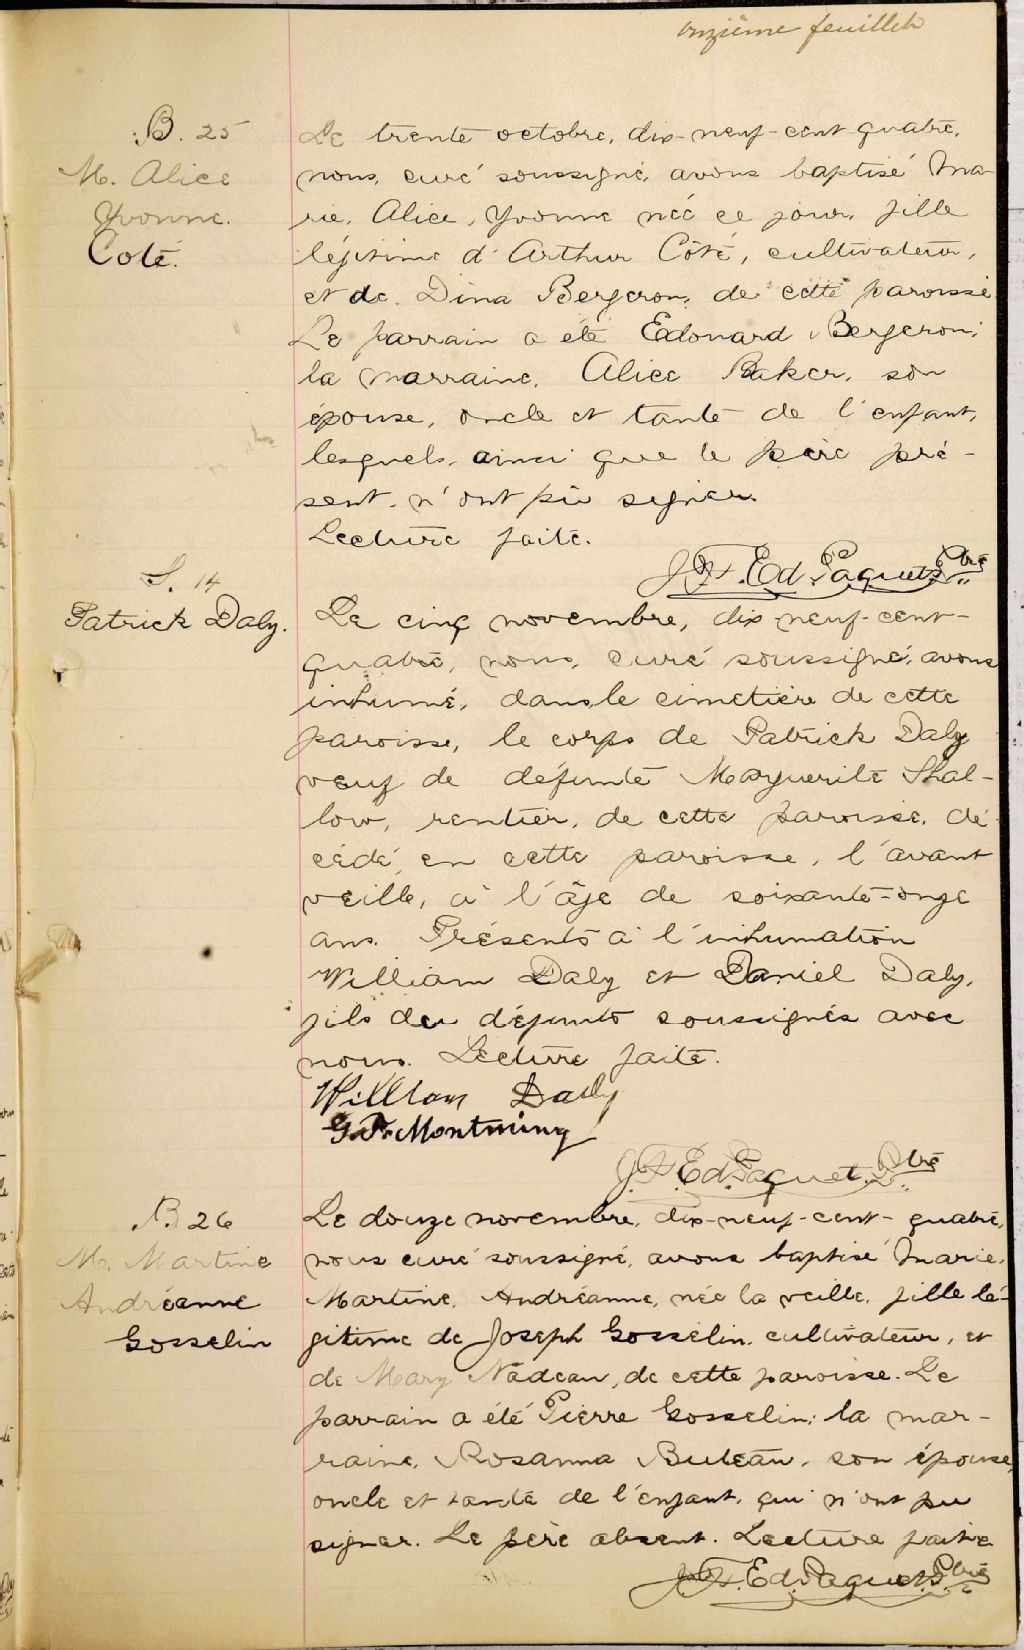 onzième feuillet
B. 25
M. Alice
Yvonne.
Coté.
Le trente octobre, dix-neuf-cent-quatre,
nous, curé soussigné, avons baptisé Ma-
rie, Alice, Yvonne née ce jour, fille
légitime d'Arthur Côté, cultivateur,
et de Dina Bergeron, de cette paroisse
Le parrain a été Edouard Bergeron;
la marraine, Alice Baker, son
épouse, oncle et tante de l'enfant,
lesquels, ainsi que le père pré-
sent, n'ont pu signer.
Lecture faite.
J. F. Ed Paquet Ptre
S. 14
Patrick Daly.
Le cinq novembre, dix neuf-cent-
quatre, nous, curé soussigné, avons
inhumé, dans le cimetière de cette
paroisse, le corps de Patrick Daly
veuf de défunte Marguerite Shal-
low, rentier, de cette paroisse, dé-
cédé en cette paroisse, l'avant
veille, à l'âge de soixante-onze
ans. Présents à l'inhumation
William Daly et Daniel Daly,
fils du défunt soussignés avec
nous. Lecture faite.
William Daly
G. F. Montminy
J. F. Ed. Paquet Ptre
B 26
M. Martine
Andréanne
Gosselin
Le douze novembre, dix-neuf-cent-quatre,
nous curé soussigné, avons baptisé Marie,
Martine, Andréanne, née la veille, fille lé-
gitime de Joseph Gosselin, cultivateur, et
de Mary Nadeau, de cette paroisse. Le
parrain a été Pierre Gosselin; la mar-
raine, Rosanna Buteau, son épouse,
oncle et tante de l'enfant, qui n'ont pu
signer. Le père absent. Lecture faite
J. F. Ed. Paquet Ptre